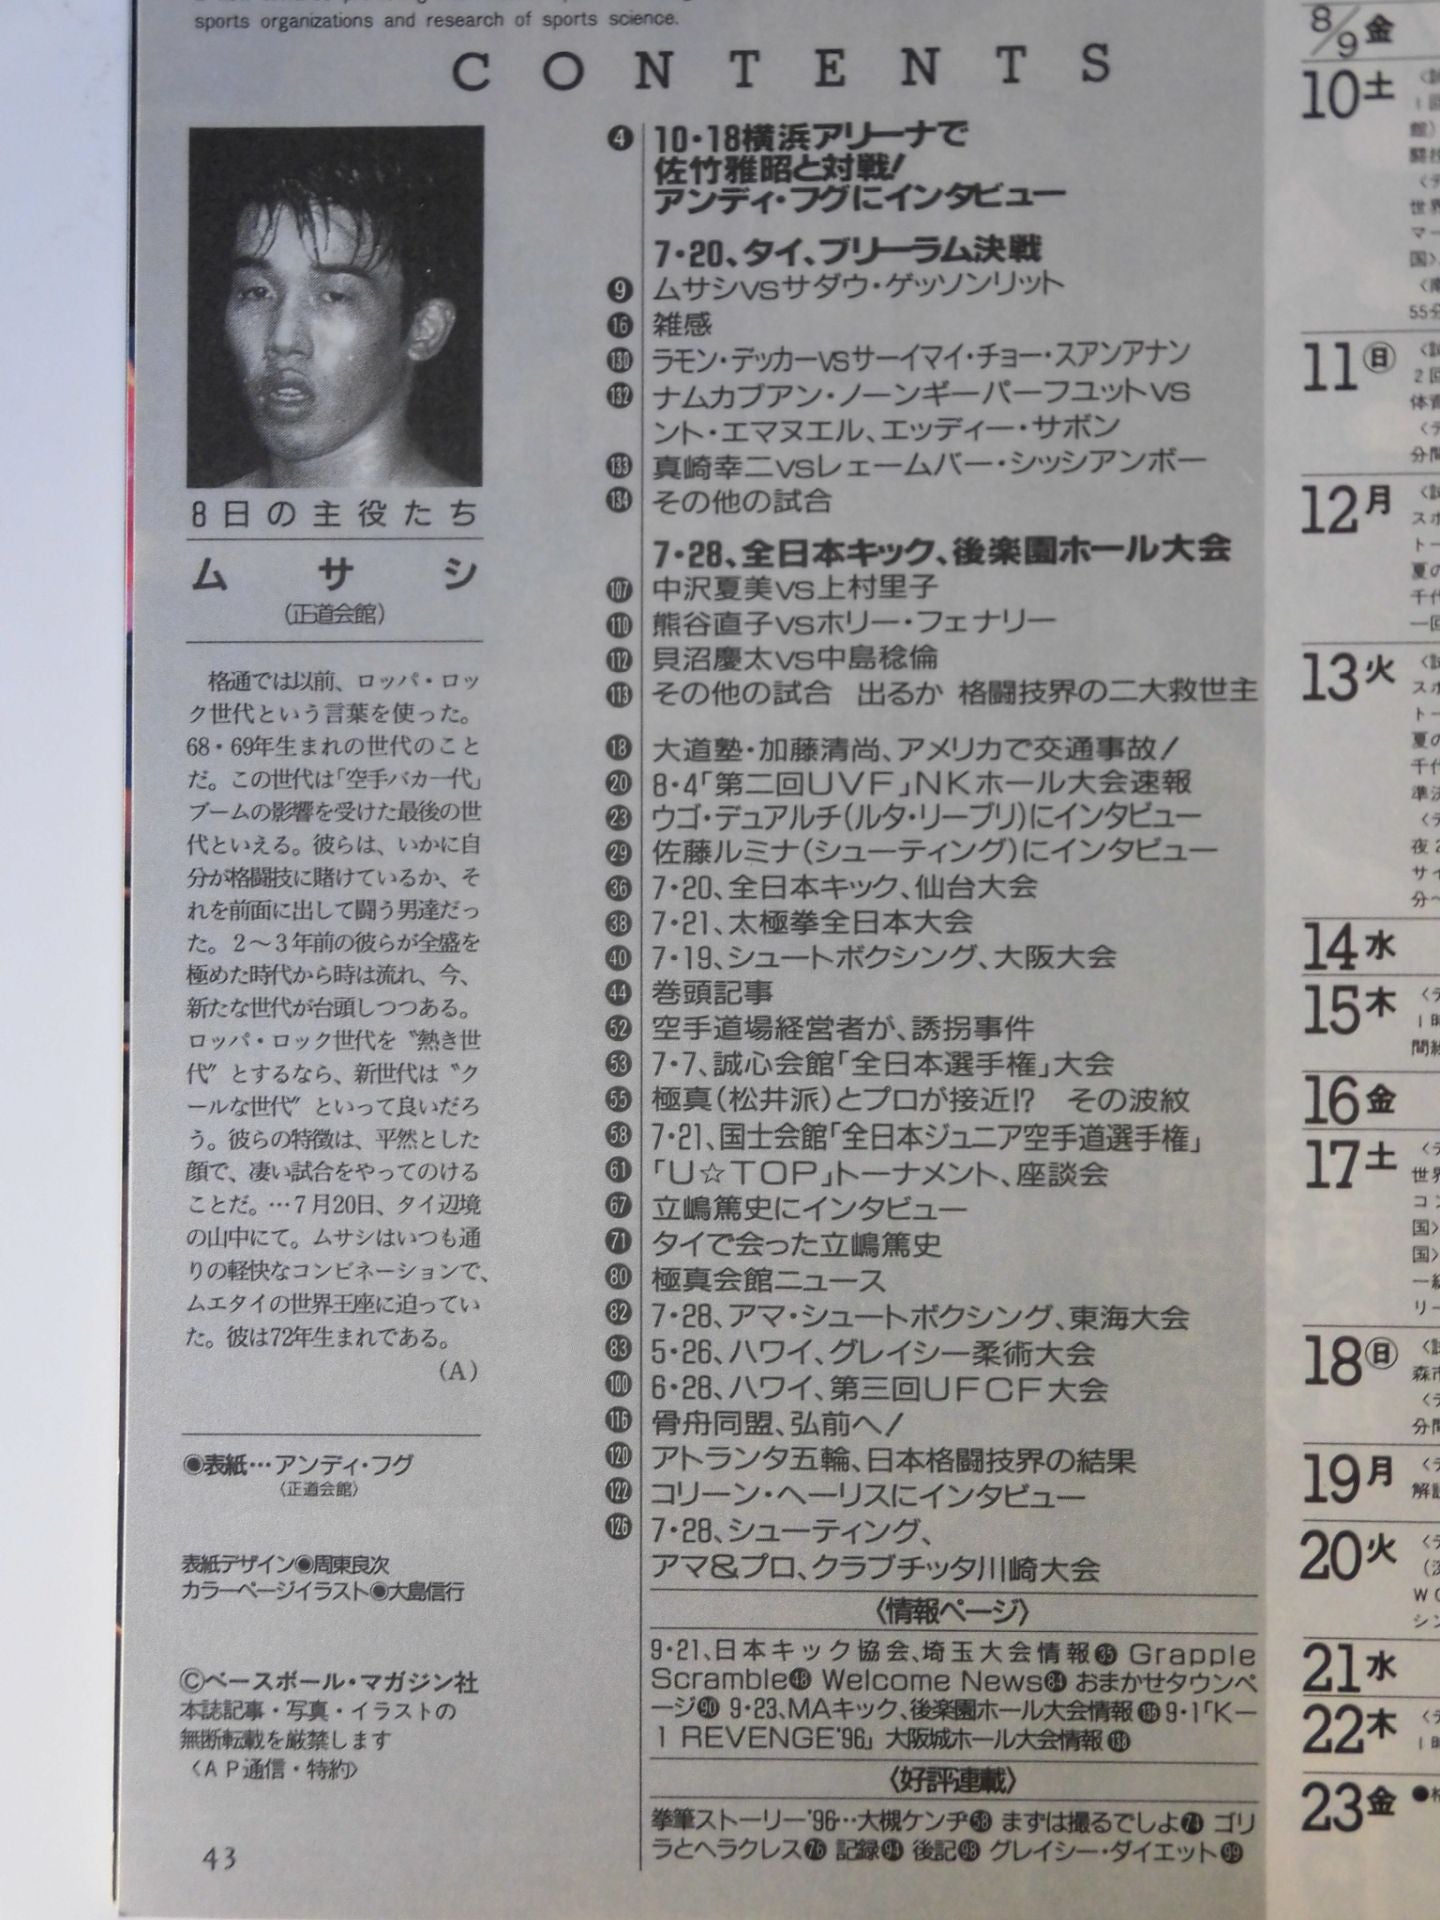 sports organizations and research of sports science.
CONTENTS
8日の主役たち
ムサシ
(正道会館)
格通では以前、ロッパ・ロッ
ク世代という言葉を使った。
68・69年生まれの世代のこと
だ。この世代は「空手バカ一代」
ブームの影響を受けた最後の世
代といえる。彼らは、いかに自
分が格闘技に賭けているか、そ
れを前面に出して闘う男達だっ
た。2〜3年前の彼らが全盛を
極めた時代から時は流れ、今、
新たな世代が台頭しつつある。
ロッパ・ロック世代を〝熱き世
代〟とするなら、新世代は〝ク
ールな世代〟といって良いだろ
う。彼らの特徴は、平然とした
顔で、凄い試合をやってのける
ことだ。…7月20日、タイ辺境
の山中にて。ムサシはいつも通
りの軽快なコンビネーションで、
ムエタイの世界王座に迫ってい
た。彼は72年生まれである。
(A)
◉表紙…アンディ・フグ
〈正道会館〉
表紙デザイン◉周東良次
カラーページイラスト◉大島信行
©ベースボール・マガジン社
本誌記事・写真・イラストの
無断転載を厳禁します
〈AP通信・特約〉
43
4 10・18横浜アリーナで
佐竹雅昭と対戦!
アンディ・フグにインタビュー
7・20、タイ、ブリーラム決戦
9 ムサシvsサダウ・ゲッソンリット
16 雑感
130 ラモン・デッカーvsサーイマイ・チョー・スアンアナン
132 ナムカブアン・ノーンギーパーフユットvs
ント・エマヌエル、エッディー・サボン
133 真崎幸二vsレェームバー・シッシアンボー
134 その他の試合
7・28、全日本キック、後楽園ホール大会
107 中沢夏美vs上村里子
110 熊谷直子vsホリー・フェナリー
112 貝沼慶太vs中島稔倫
113 その他の試合 出るか 格闘技界の二大救世主
18 大道塾・加藤清尚、アメリカで交通事故!
20 8・4「第二回UVF」NKホール大会速報
23 ウゴ・デュアルチ(ルタ・リーブリ)にインタビュー
29 佐藤ルミナ(シューティング)にインタビュー
36 7・20、全日本キック、仙台大会
38 7・21、太極拳全日本大会
40 7・19、シュートボクシング、大阪大会
44 巻頭記事
52 空手道場経営者が、誘拐事件
53 7・7、誠心会館「全日本選手権」大会
55 極真(松井派)とプロが接近!? その波紋
58 7・21、国士会館「全日本ジュニア空手道選手権」
61 「U☆TOP」トーナメント、座談会
67 立嶋篤史にインタビュー
71 タイで会った立嶋篤史
80 極真会館ニュース
82 7・28、アマ・シュートボクシング、東海大会
83 5・26、ハワイ、グレイシー柔術大会
100 6・28、ハワイ、第三回UFCF大会
116 骨舟同盟、弘前へ!
120 アトランタ五輪、日本格闘技界の結果
122 コリーン・ヘーリスにインタビュー
126 7・28、シューティング、
アマ&プロ、クラブチッタ川崎大会
〈情報ページ〉
9・21、日本キック協会、埼玉大会情報35 Grapple
Scramble48 Welcome News84 おまかせタウンペ
ージ90 9・23、MAキック、後楽園ホール大会情報136 9・1「K-
1 REVENGE'96」大阪城ホール大会情報138
〈好評連載〉
拳筆ストーリー'96…大槻ケンヂ58 まずは撮るでしよ74 ゴリ
ラとヘラクレス76 記録94 後記98 グレイシー・ダイエット99
8/9金
10土
11日
12月
13火
14水
15木
16金
17土
18日
19月
20火
21水
22木
23金